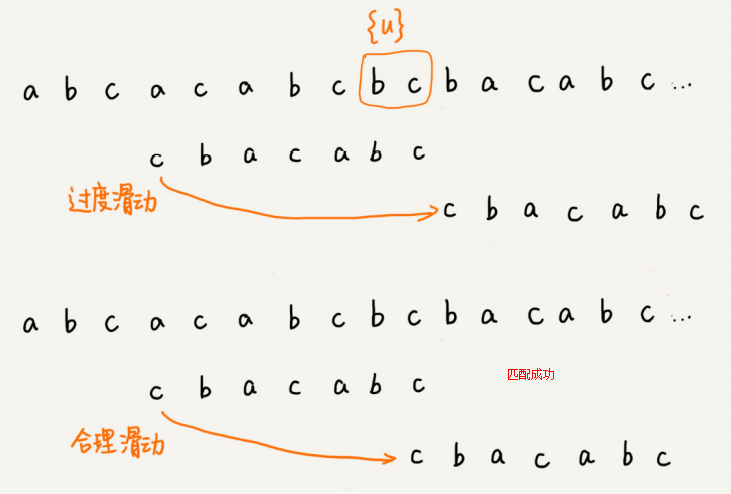 {u}
a b c a c a b c b c b a c a b c ...
c b a c a b c
过度滑动
c b a c a b c
a b c a c a b c b c b a c a b c ...
c b a c a b c
匹配成功
合理滑动
c b a c a b c